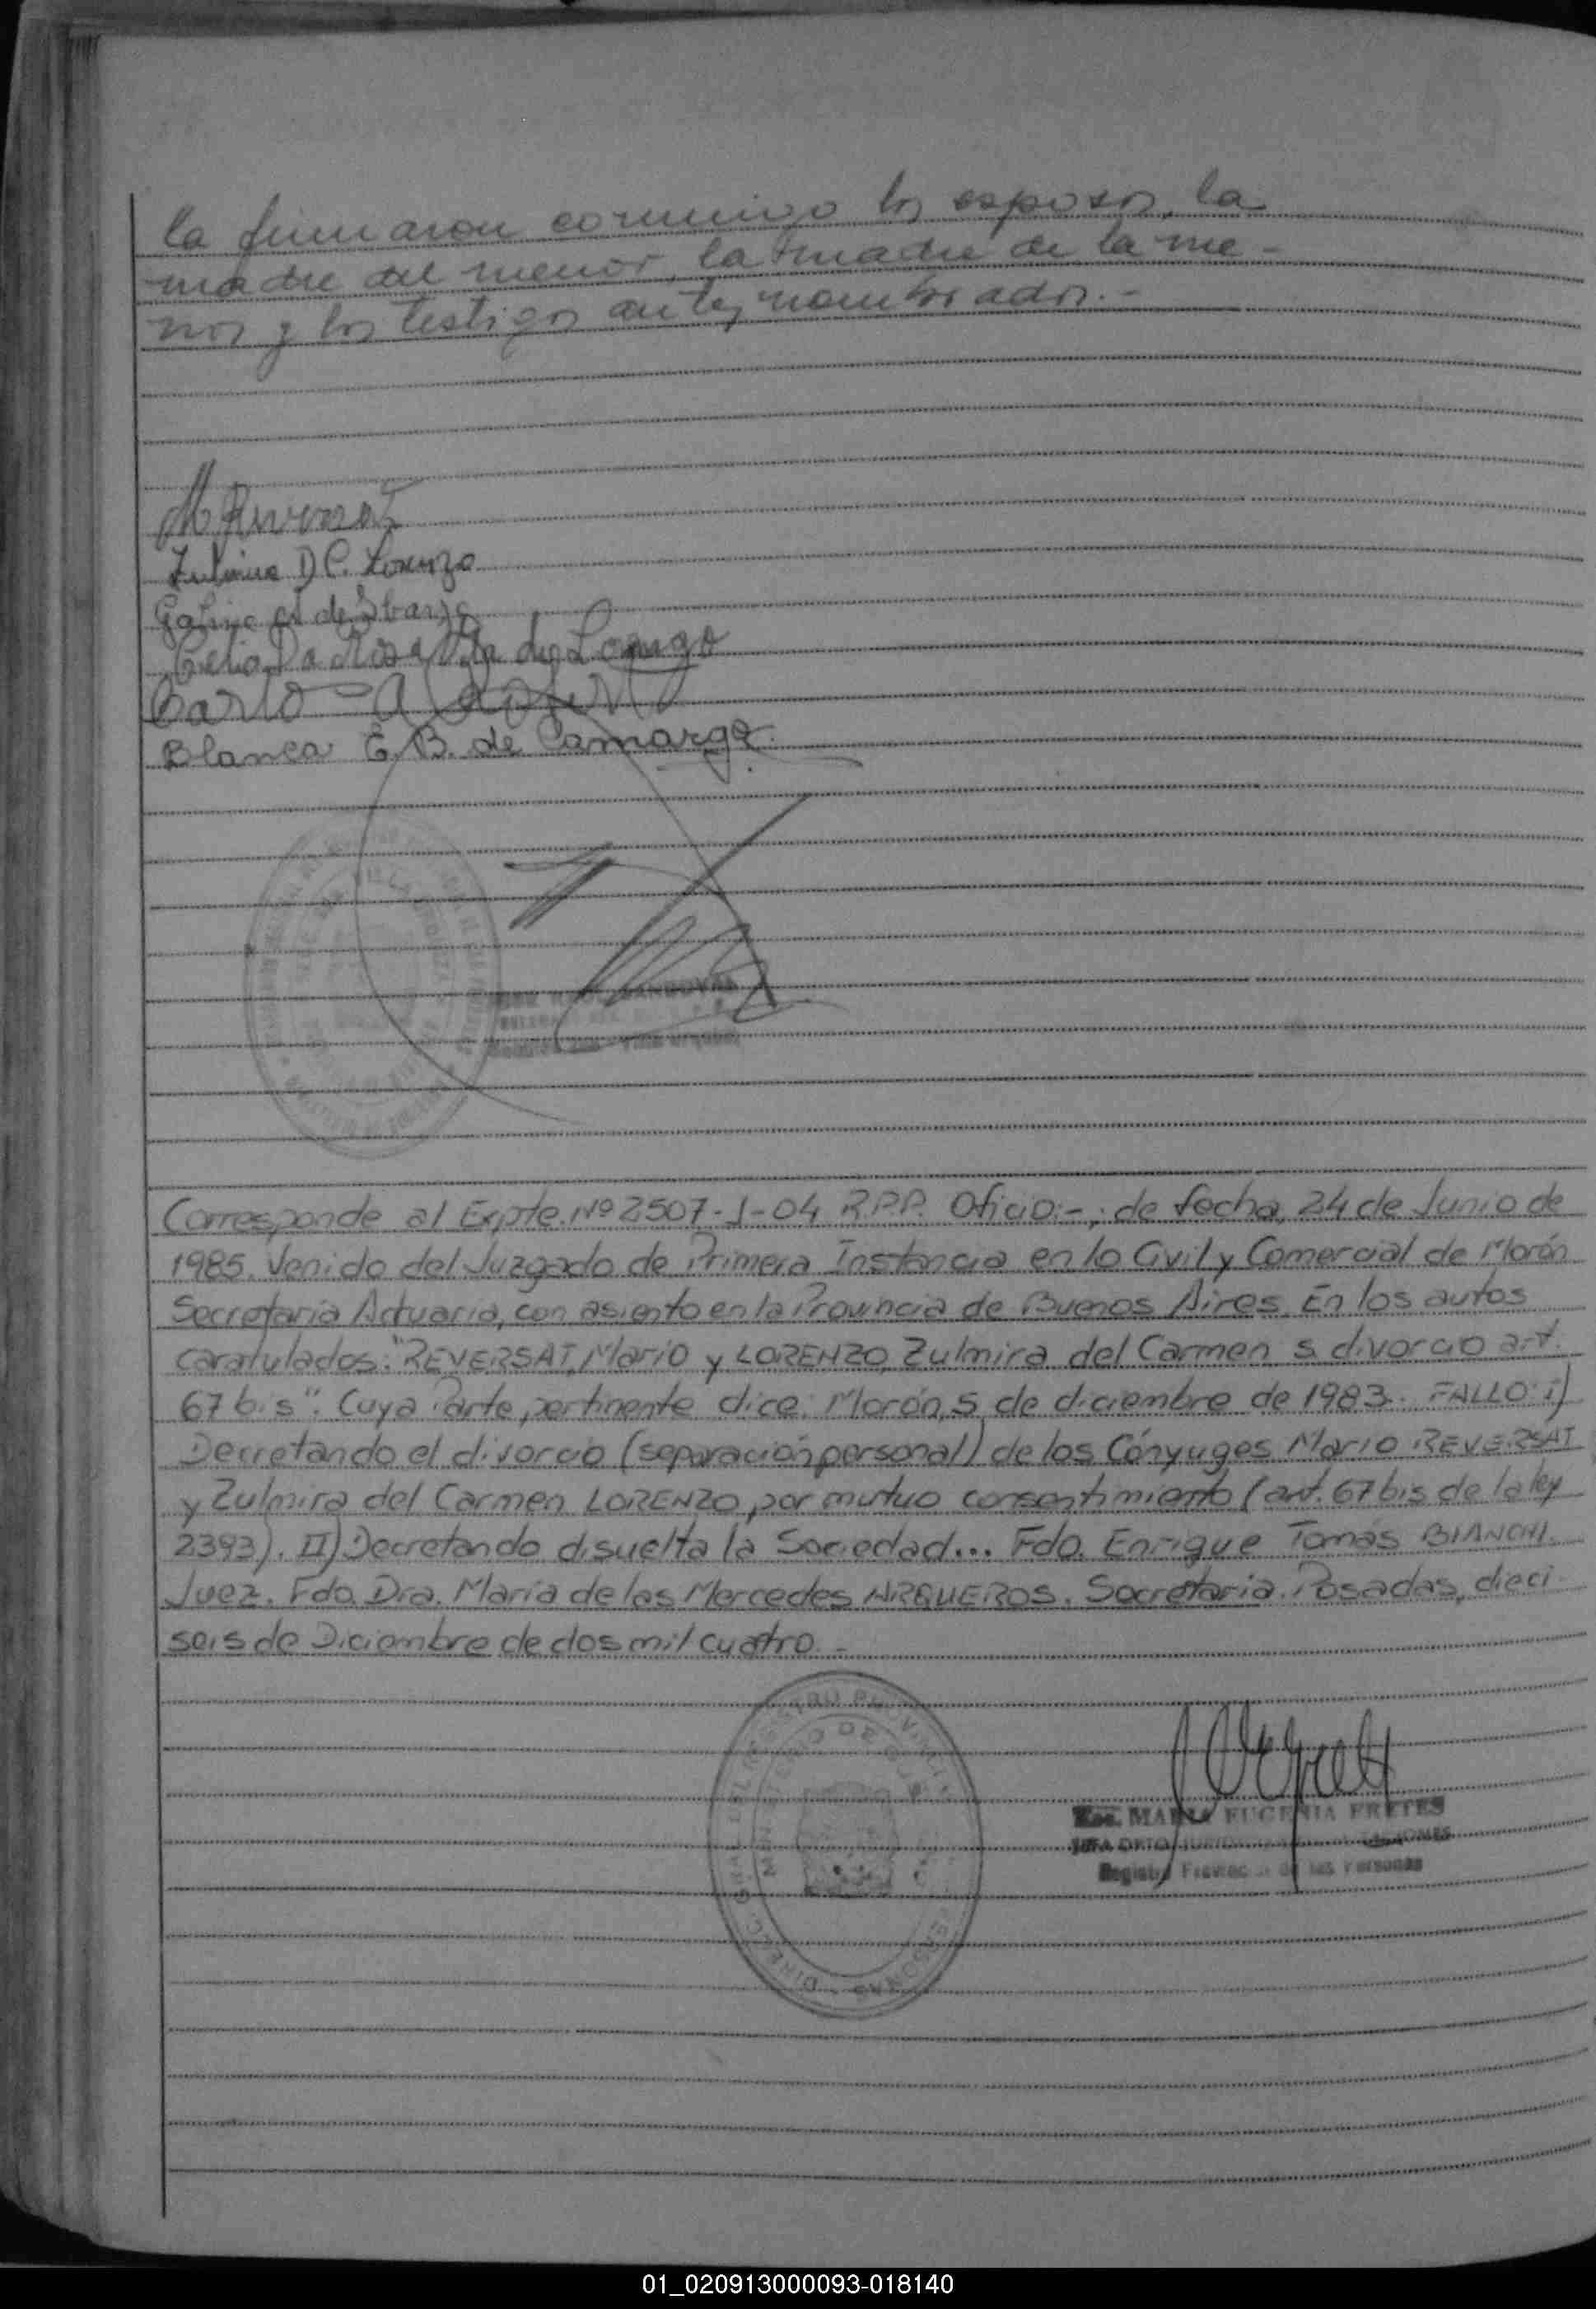 la firmaron conmigo los esposos, la
madre del menor, la madre de la me-
nor y los testigos antes nombrados.-
Zulmira D C. Lorenzo
de Lorenzo
Blanca E. B. de Camargo.
Corresponde al Expte. Nº 2507-J-04 R.P.P. Oficio:-; de fecha, 24 de Junio de
1985. Venido del Juzgado de Primera Instancia en lo Civil y Comercial de Morón
Secretaría Actuaria, con asiento en la Provincia de Buenos Aires. En los autos
caratulados: "REVERSAT, Mario y LORENZO, Zulmira del Carmen s. divorcio art.
67 bis". Cuya Parte, pertinente dice: Morón, 5 de diciembre de 1983. FALLO: I)
Decretando el divorcio (separación personal) de los Cónyuges Mario REVERSAT
y Zulmira del Carmen LORENZO, por mutuo consentimiento (art. 67 bis de la ley
2393). II) Decretando disuelta la Sociedad... Fdo. Enrique Tomás BIANCHI.
Juez. Fdo. Dra. María de las Mercedes ARQUEROS. Secretaria. Posadas, dieci-
seis de Diciembre de dos mil cuatro.-
MARIA EUGENIA FRETES
JEFA DPTO.
Registro Provincial de las Personas
01_020913000093-018140